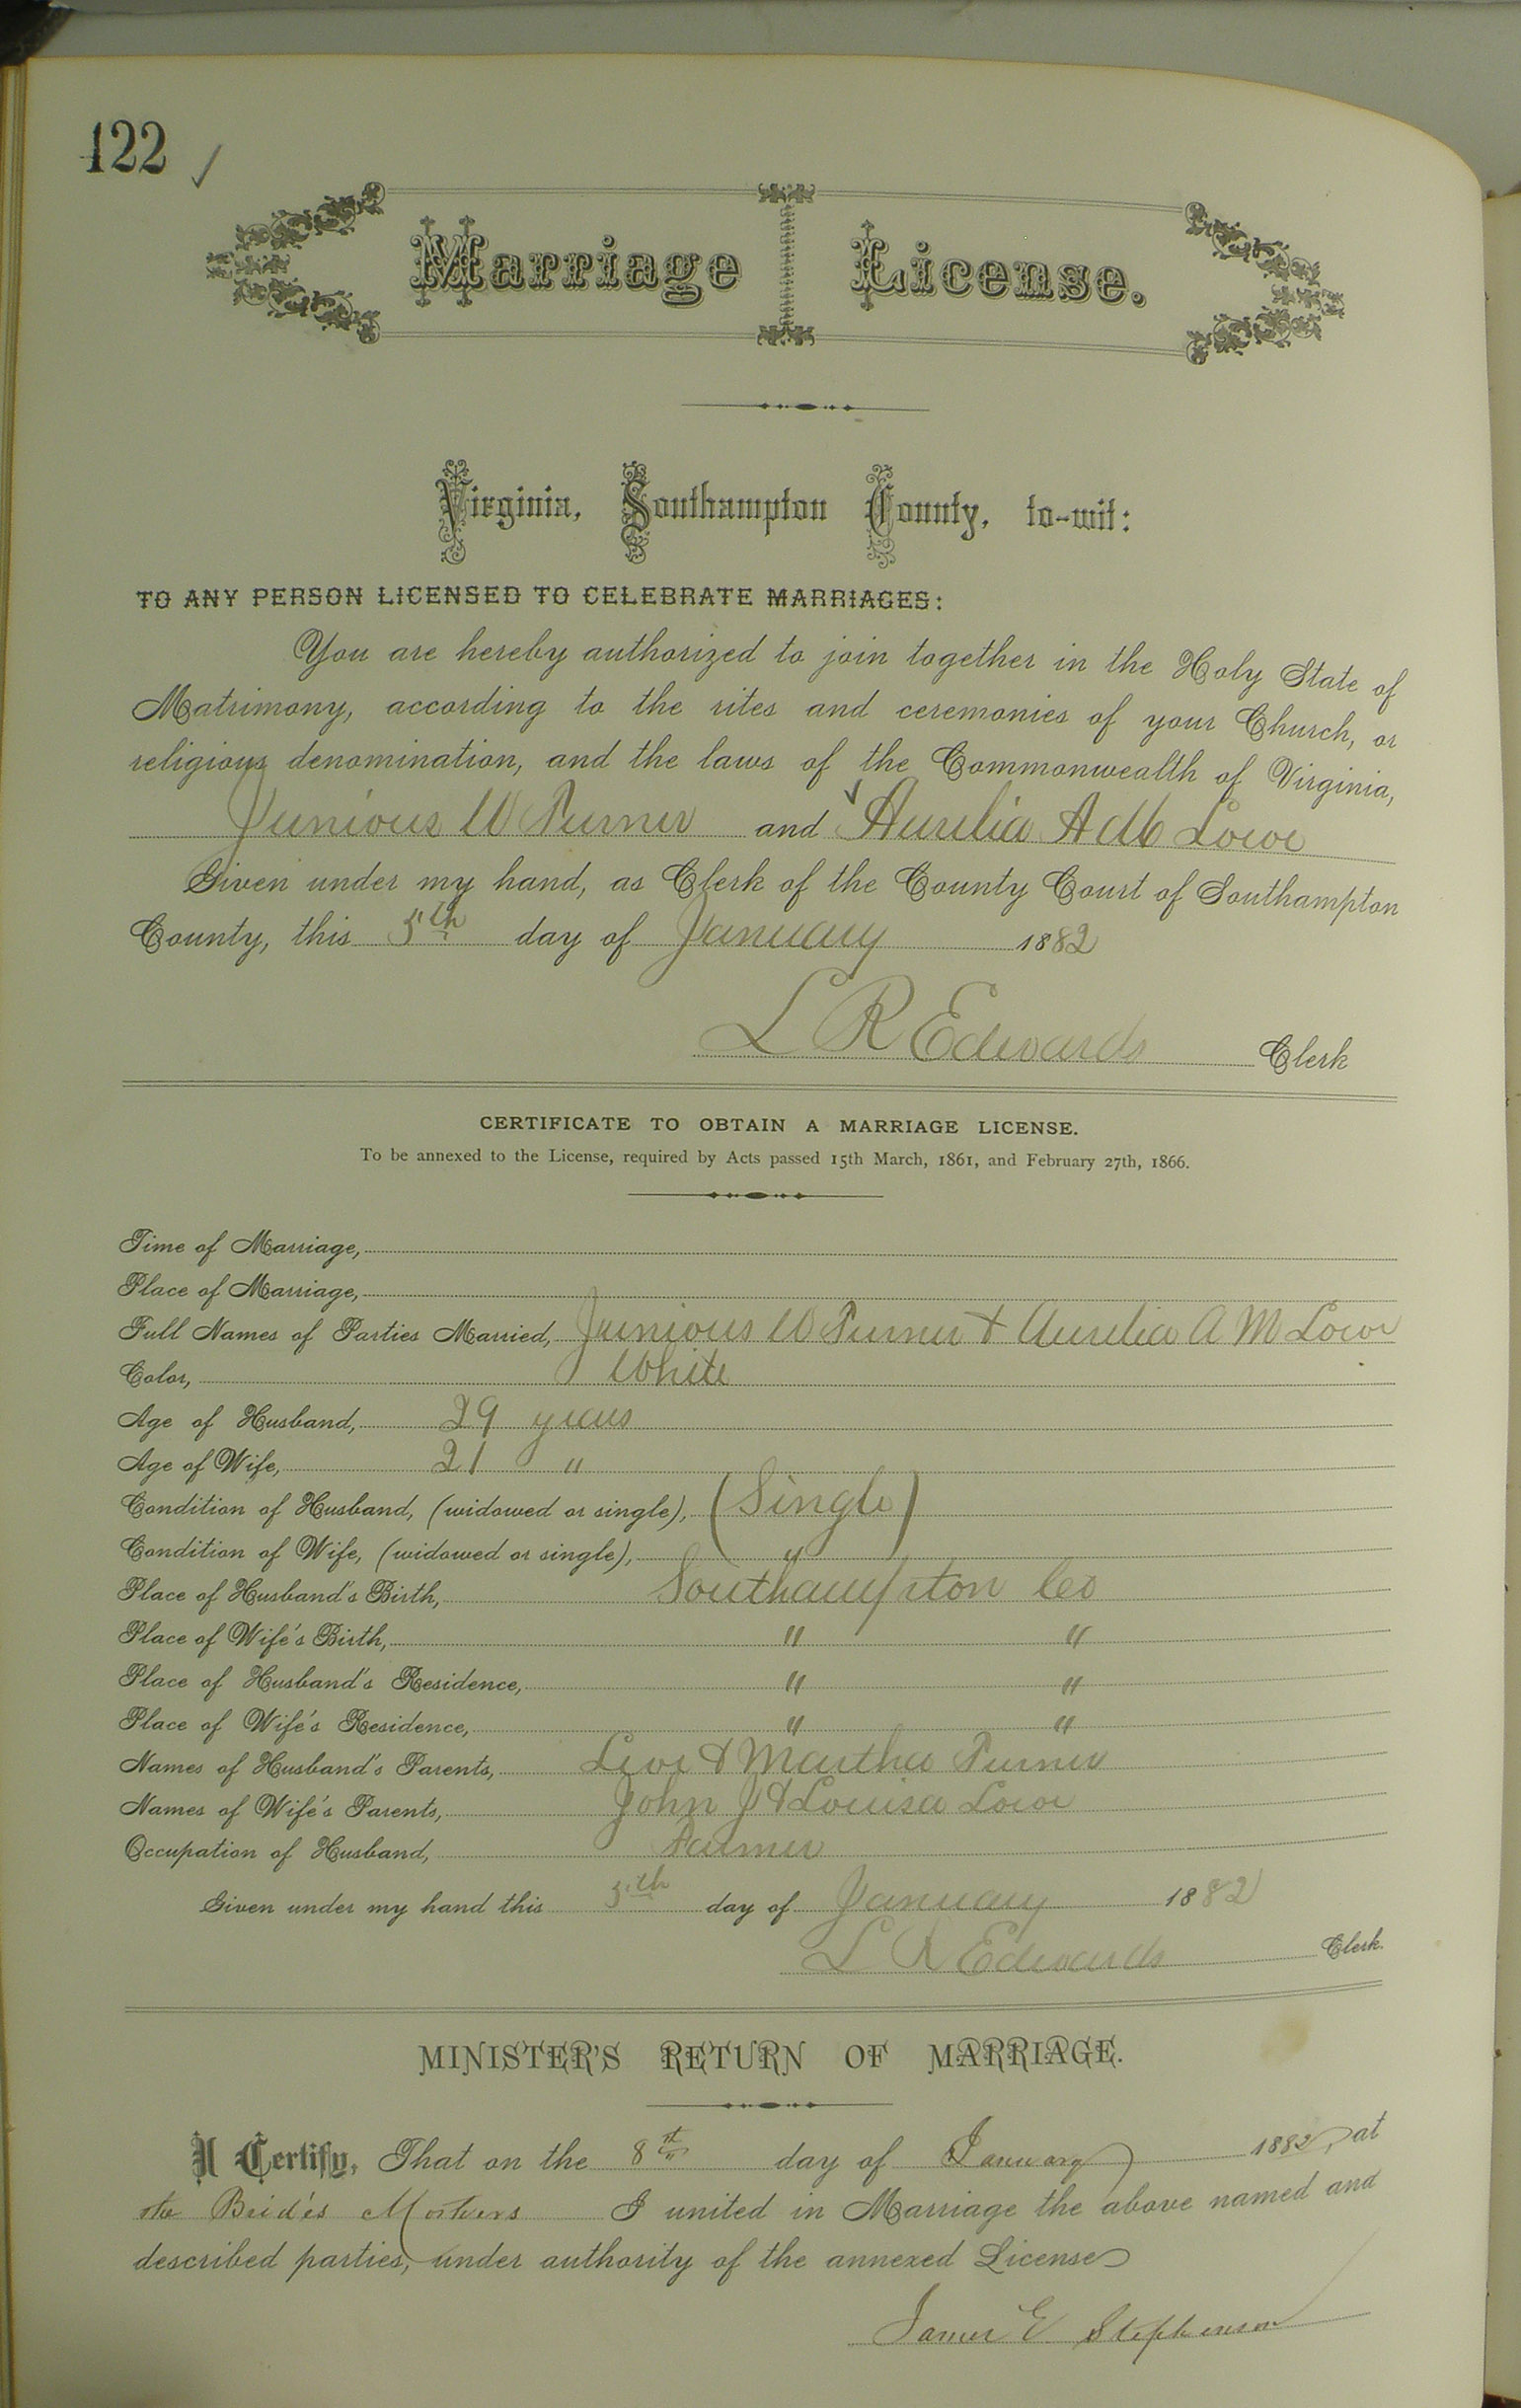 122 ✓
Marriage License.
Virginia, Southampton County, to-wit:
TO ANY PERSON LICENSED TO CELEBRATE MARRIAGES:
You are hereby authorized to join together in the Holy State of
Matrimony, according to the rites and ceremonies of your Church, or
religious denomination, and the laws of the Commonwealth of Virginia,
Junious W Purner and Aurelia A M Lowe
Given under my hand, as Clerk of the County Court of Southampton
County, this 5th day of January 1882
L R Edwards Clerk
CERTIFICATE TO OBTAIN A MARRIAGE LICENSE.
To be annexed to the License, required by Acts passed 15th March, 1861, and February 27th, 1866.
Time of Marriage,
Place of Marriage,
Full Names of Parties Married, Junious W Purner & Aurelia A M Lowe
Color, White
Age of Husband, 29 years
Age of Wife, 21 "
Condition of Husband, (widowed or single), (Single)
Condition of Wife, (widowed or single), "
Place of Husband's Birth, Southampton Co
Place of Wife's Birth, " "
Place of Husband's Residence, " "
Place of Wife's Residence, " "
Names of Husband's Parents, Levi & Martha Purner
Names of Wife's Parents, John J & Louisa Lowe
Occupation of Husband, Farmer
Given under my hand this 5th day of January 1882
L R Edwards Clerk.
MINISTER'S RETURN OF MARRIAGE.
I Certify, That on the 8 day of January 1882, at
the Bride's Mothers I united in Marriage the above named and
described parties, under authority of the annexed License
James E Stephenson